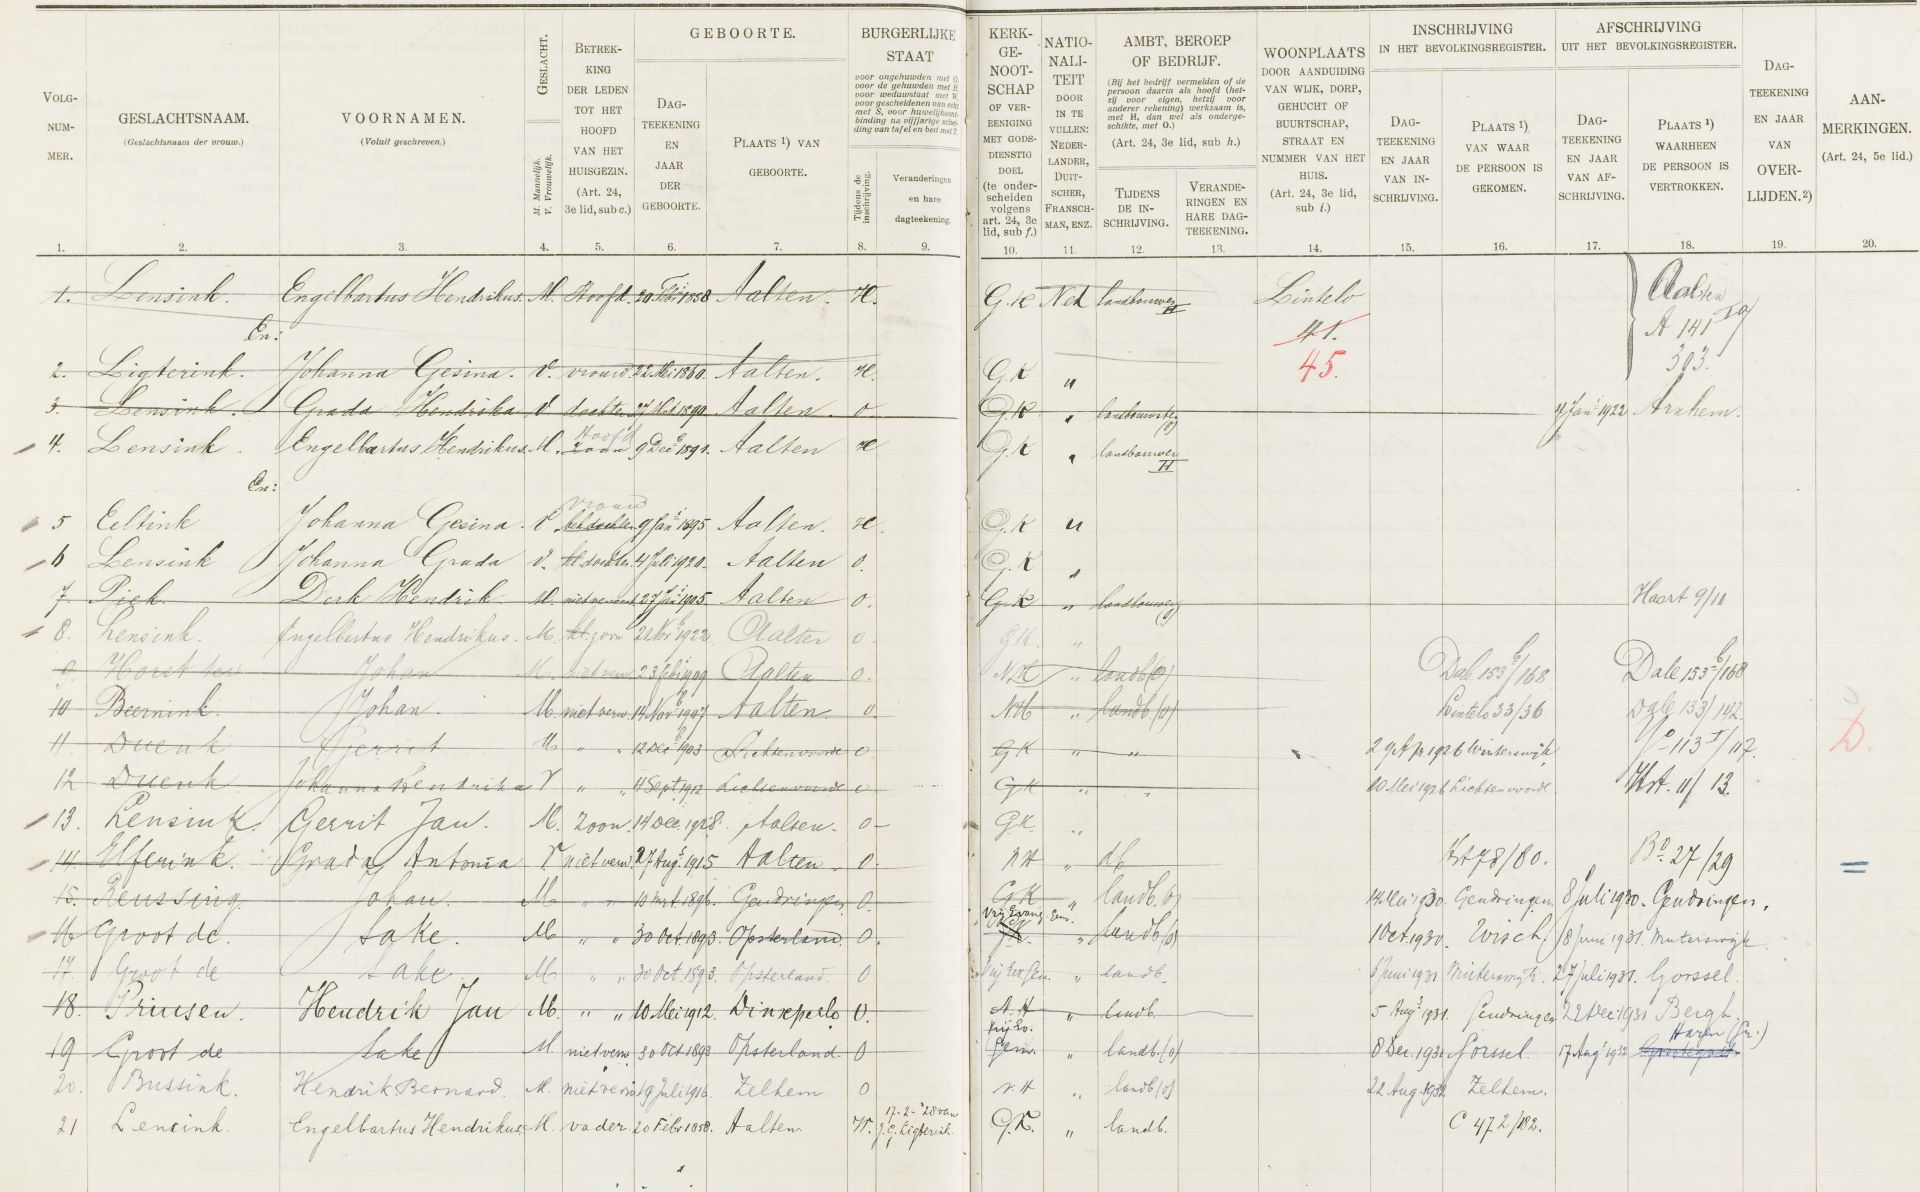 VOLG-NUM-MER.
GESLACHTSNAAM.
(Geslachtsnaam der vrouw.)
VOORNAMEN.
(Voluit geschreven.)
GESLACHT.
M. Mannelijk.
V. Vrouwelijk.
BETREK-KING DER LEDEN TOT HET HOOFD VAN HET HUISGEZIN.
(Art. 24, 3e lid, sub c.)
GEBOORTE.
DAG-TEEKENING EN JAAR DER GEBOORTE.
PLAATS 1) VAN GEBOORTE.
BURGERLIJKE STAAT
Tijdens de inschrijving.
Veranderingen en hare dagteekening.
KERK-GE-NOOT-SCHAP OF VER-EENIGING MET GODS-DIENSTIG DOEL (te onder-scheiden volgens art. 24, 3e lid, sub f.)
NATIO-NALI-TEIT DOOR IN TE VULLEN: NEDER-LANDER, DUIT-SCHER, FRANSCH-MAN, ENZ.
AMBT, BEROEP OF BEDRIJF.
(Bij het bedrijf vermelden of de persoon daarin als hoofd (het-zij voor eigen, hetzij voor anderer rekening) werkzaam is, met H, dan wel als onderge-schikte, met O.)
(Art. 24, 3e lid, sub h.)
TIJDENS DE IN-SCHRIJVING.
VERANDE-RINGEN EN HARE DAG-TEEKENING.
WOONPLAATS DOOR AANDUIDING VAN WIJK, DORP, GEHUCHT OF BUURTSCHAP, STRAAT EN NUMMER VAN HET HUIS.
(Art. 24, 3e lid, sub i.)
INSCHRIJVING IN HET BEVOLKINGSREGISTER.
DAG-TEEKENING EN JAAR VAN IN-SCHRIJVING.
PLAATS 1) VAN WAAR DE PERSOON IS GEKOMEN.
AFSCHRIJVING UIT HET BEVOLKINGSREGISTER.
DAG-TEEKENING EN JAAR VAN AF-SCHRIJVING.
PLAATS 1) WAARHEEN DE PERSOON IS VERTROKKEN.
DAG-TEEKENING EN JAAR VAN OVER-LIJDEN. 2)
AAN-MERKINGEN.
(Art. 24, 5e lid.)
1. 2. 3. 4. 5. 6. 7. 8. 9. 10. 11. 12. 13. 14. 15. 16. 17. 18. 19. 20.
1. Lensink. Engelbartus Hendrikus. M. Hoofd. 20 Febr 1858 Aalten. H. G.K Ned landbouwer H Lintelo Aalten
En: 41. A 141
45. 303.
2. Ligterink. Johanna Gesina. V. vrouw 22 Mei 1860. Aalten. H. G.K "
3. Lensink. Grada Hendrika V dochter 1890. Aalten. O G.K " (O) Jan 1922 Arnhem.
4. Lensink. Engelbartus Hendrikus. M. Hoofd Zoon 9 Dec 1891. Aalten H G.K " landbouwer H
En:
5 Eeltink Johanna Gesina. V. vrouw 9 Jan 1895. Aalten. H. G.K "
6 Lensink Johanna Grada V. kl. dochter 4 Juli 1920. Aalten O. G.K "
7. Piek. Derk Hendrik M. niet verwant 27 Jan 1905. Aalten O. G.K " Haart 9/11
8. Lensink. Engelbertus Hendrikus. M. kl. zoon 21 Nov 1922 Aalten O. G.K. "
9 Horst ter Johan M. niet verw 23 Feb 1909 Aalten O. N.H " landb (O) Dale 153 b/168 Dale 153 b/168
10 Beernink. Johan. M. niet verw. 14 Nov 1907 Aalten. O. NH " landb. (O) Lintelo 33/36 Dale 133/142
11. Duenk Gerrit M " " 12 Dec 1903 Lichtenvoorde O G K " " 29 Apr 1926 Winterswijk. D.
12 Duenk Johanna Hendrika V " " 4 Sept 1912 Lichtenvoorde O G K " " 10 Mei 1926 Lichtenvoorde Hrt. 11/13.
13. Lensink. Gerrit Jan. M. Zoon. 14 Dec. 1928. Aalten. O G.K. "
14. Elferink. Grada Antonia V niet verw 27 Aug. 1915 Aalten O. NH " db Hrt 78/80. Bo. 27/29
15. Reussing Johan. M " " 10 mrt. 1896. Gendringen. O. G K " landb. (O) 14 Mei 1930 Gendringen 8 Juli 1930. Gendringen.
16 Groot de. Sake. M " " 30 Oct. 1893. Opsterland. O. Vrij Evang. Gem. " landb (O) 1 Oct. 1930. Wisch. 8 Juni 1931 Winterswijk
17. Groot de Sake M " " 30 Oct. 1893 Opsterland. O Vrij Ev. Gem. " landb. 6 Juni 1931 Winterswijk. 27 Juli 1931. Gorssel.
18. Prinsen. Hendrik Jan M. " " 10 Mei 1912. Dinxperlo O. N.H " landb. 5 Aug 1931. Gendringen 22 Dec 1931 Bergh.
19 Groot de Sake M. niet verw 30 Oct. 1893 Opsterland. O Vrij Ev. Gem. " landb. (O) 8 Dec. 1931 Gorssel. 17 Aug 1932 Haren (Gr.)
20. Bussink. Hendrik Bernard. M. niet verw 19 Juli 1916. Zelhem O N.H " landb (O) 22 Aug. 1932 Zelhem.
21 Lensink. Engelbartus Hendrikus. M. vader 20 Febr 1858. Aalten. W. 17-2-'28 van J.G. Ligterink G.K. " landb. C 472/182.